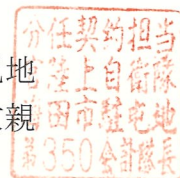 地
親
分任契約担当
官陸上自衛隊
屯地
第350会計隊長